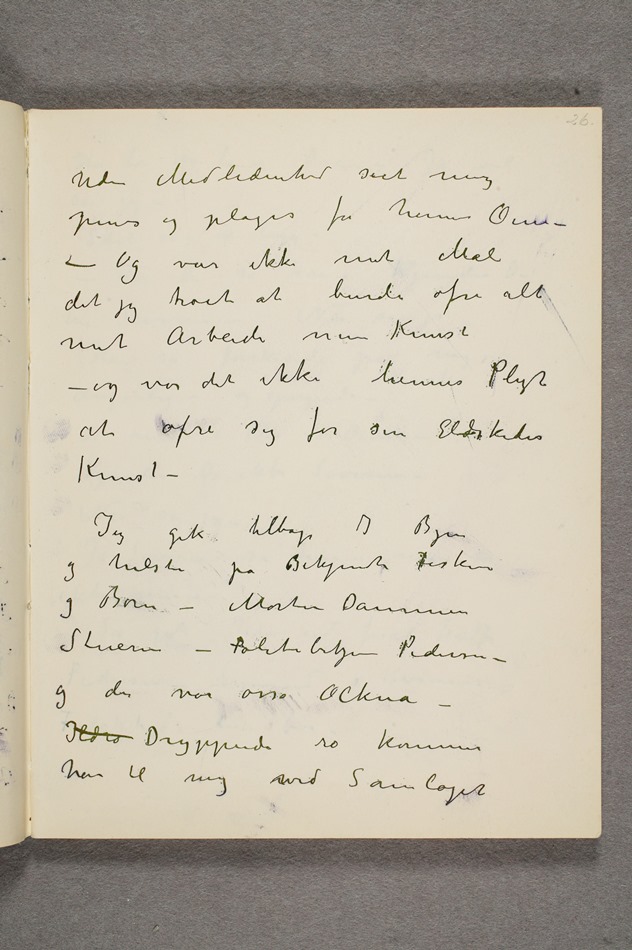 26.
Uden Medlidenhed seet mig
pines og plages for hennes Øine –
– Og var ikke mit Mål
det jeg troet at burde ofre alt
mit Arbeide min Kunst
– og var det ikke hennes Pligt
at ofre sig for sin Elskedes
Kunst –
Jeg gik tilbage I Byen
og hilste på Bekjendte Fiskere
og Børn – Morten Dammen
Stueren – Politibetjen Pedersen –
og der var osså
Dryppende så kommer
han til mig ved Samlaget